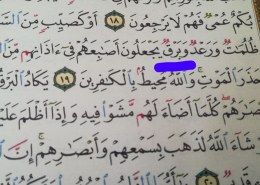 بُكْمٌ عُمْىٌ فَهُمْ لَا يَرْجِعُونَ ١٨ أَوْ كَصَيِّبٍ مِّنَ
ظُلُمَٰتٌ وَرَعْدٌ وَبَرْقٌ يَجْعَلُونَ أَصَٰبِعَهُمْ فِىٓ ءَاذَانِهِم مِّنَ ٱلصَّ
حَذَرَ ٱلْمَوْتِ وَٱللَّهُ مُحِيطٌۢ بِٱلْكَٰفِرِينَ ١٩ يَكَادُ ٱلْبَرْقُ
أَبْصَٰرَهُمْ كُلَّمَآ أَضَآءَ لَهُم مَّشَوْا۟ فِيهِ وَإِذَآ أَظْلَمَ عَلَيْ
شَآءَ ٱللَّهُ لَذَهَبَ بِسَمْعِهِمْ وَأَبْصَٰرِهِمْ إِنَّ